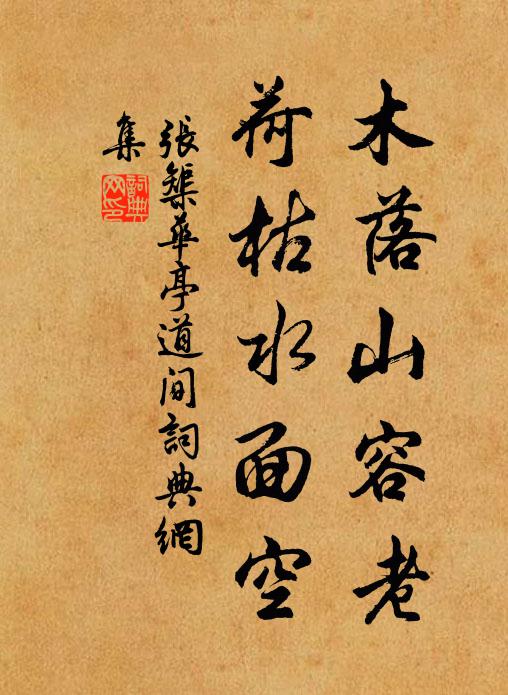 木落山容老
荷枯水面空
張榘華亭道间詞典網
集
詞典
网印